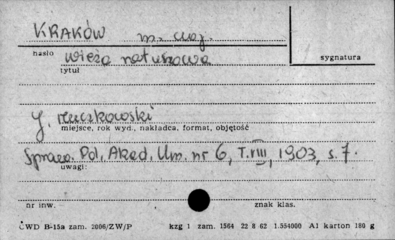 KRAKÓW m. woj.
hasło wieża ratuszowa sygnatura
tytuł
J. Muczkowski
miejsce, rok wyd., nakładca, format, objętość
Spraw. Pol. Akad. Um. nr 6, T. VIII, 1903, s. 7.
uwagi:
nr inw. znak klas.
ĆWD B-15a zam. 2006/ZW/P kzg 1 zam. 1564 22 8 62 1.554000 A1 karton 180 g